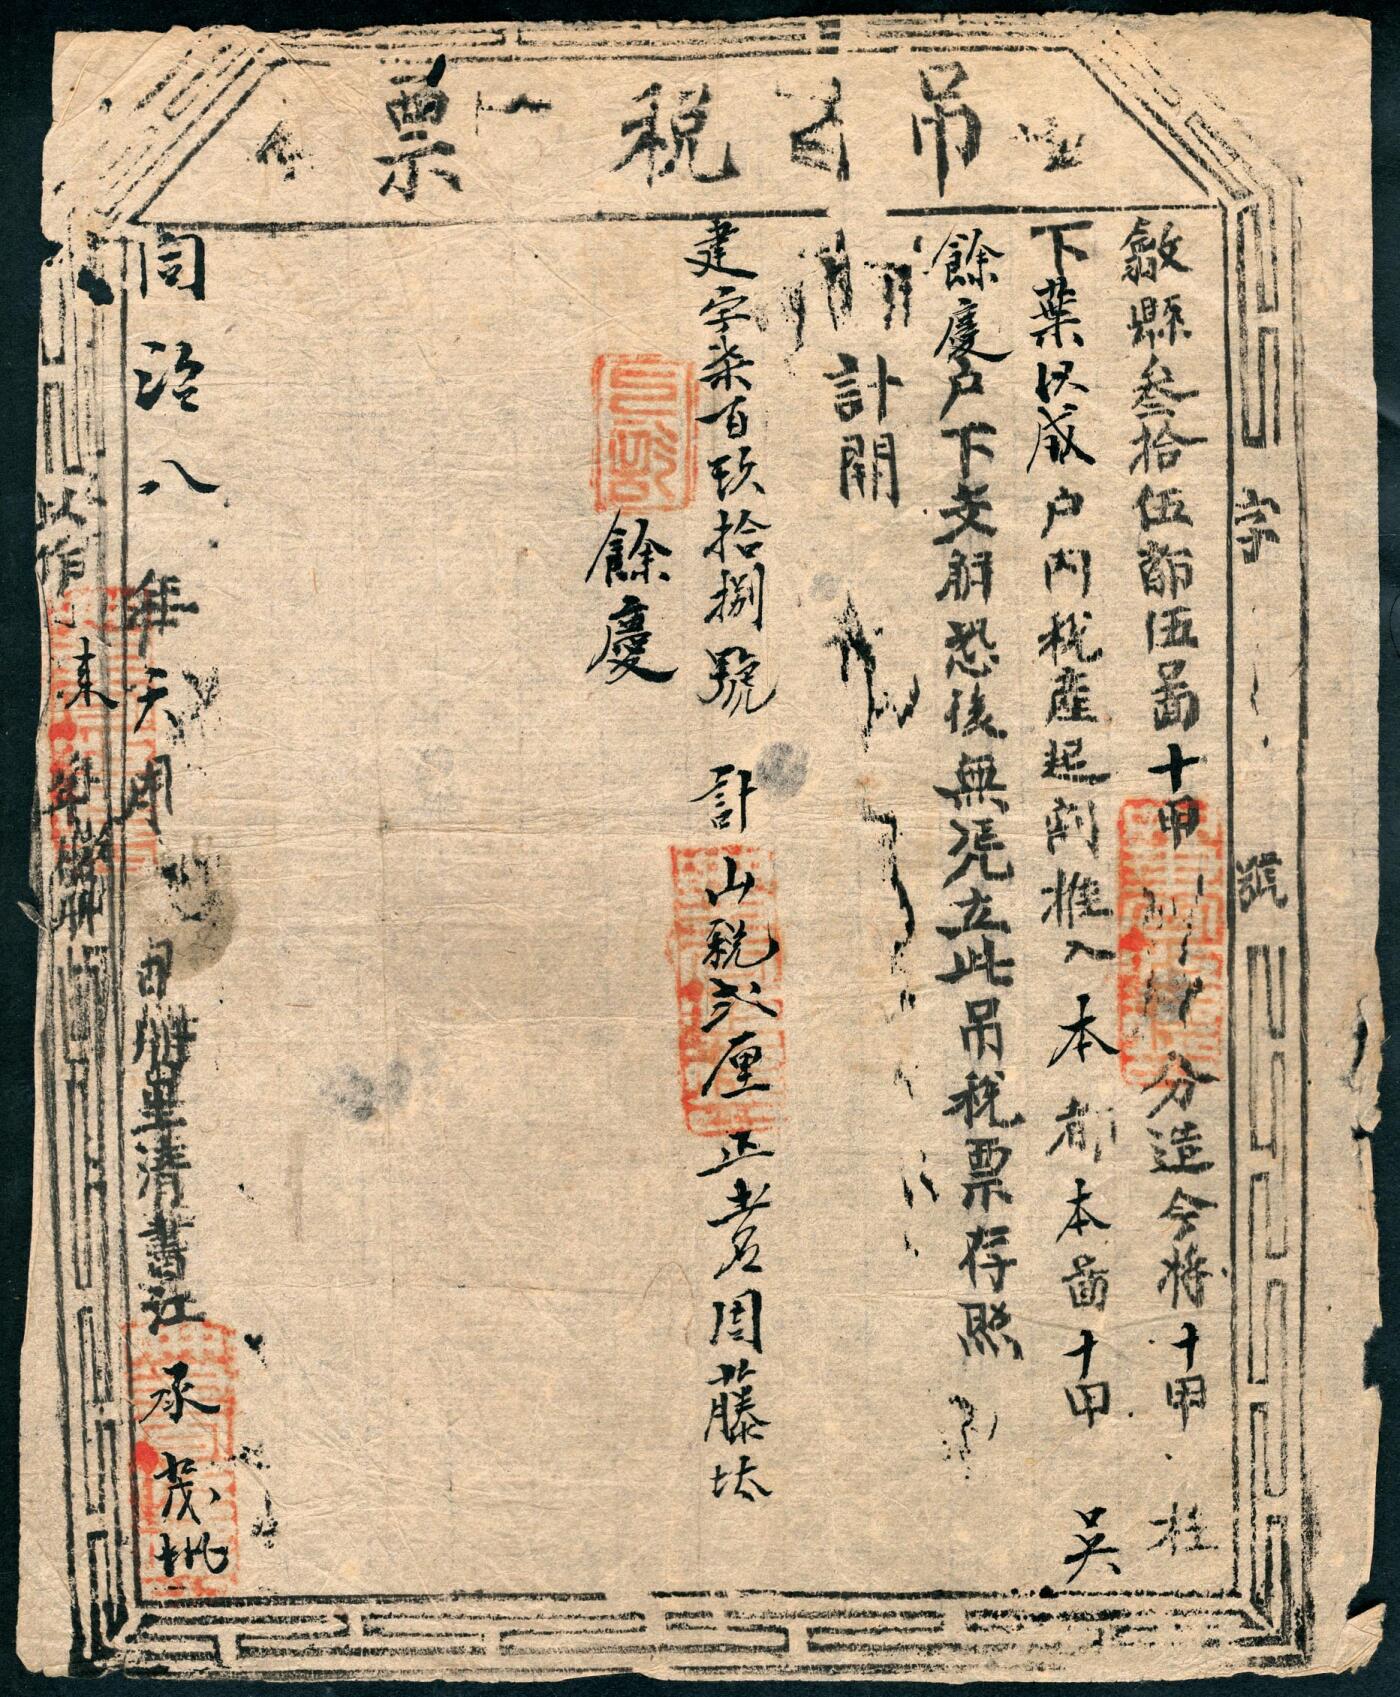 吊 税 票
字 號
歙縣叁拾伍都伍啚十甲 分造今將十甲 柱
下葉 成户内税產起割推入本都本啚十甲 吳
餘慶户下支解恐後無凴立此吊税票存照
計開
建字柒百玖拾捌號 計山税弍厘正 土名周藤坵
餘慶
同治八年 月 日册里清書江承茂